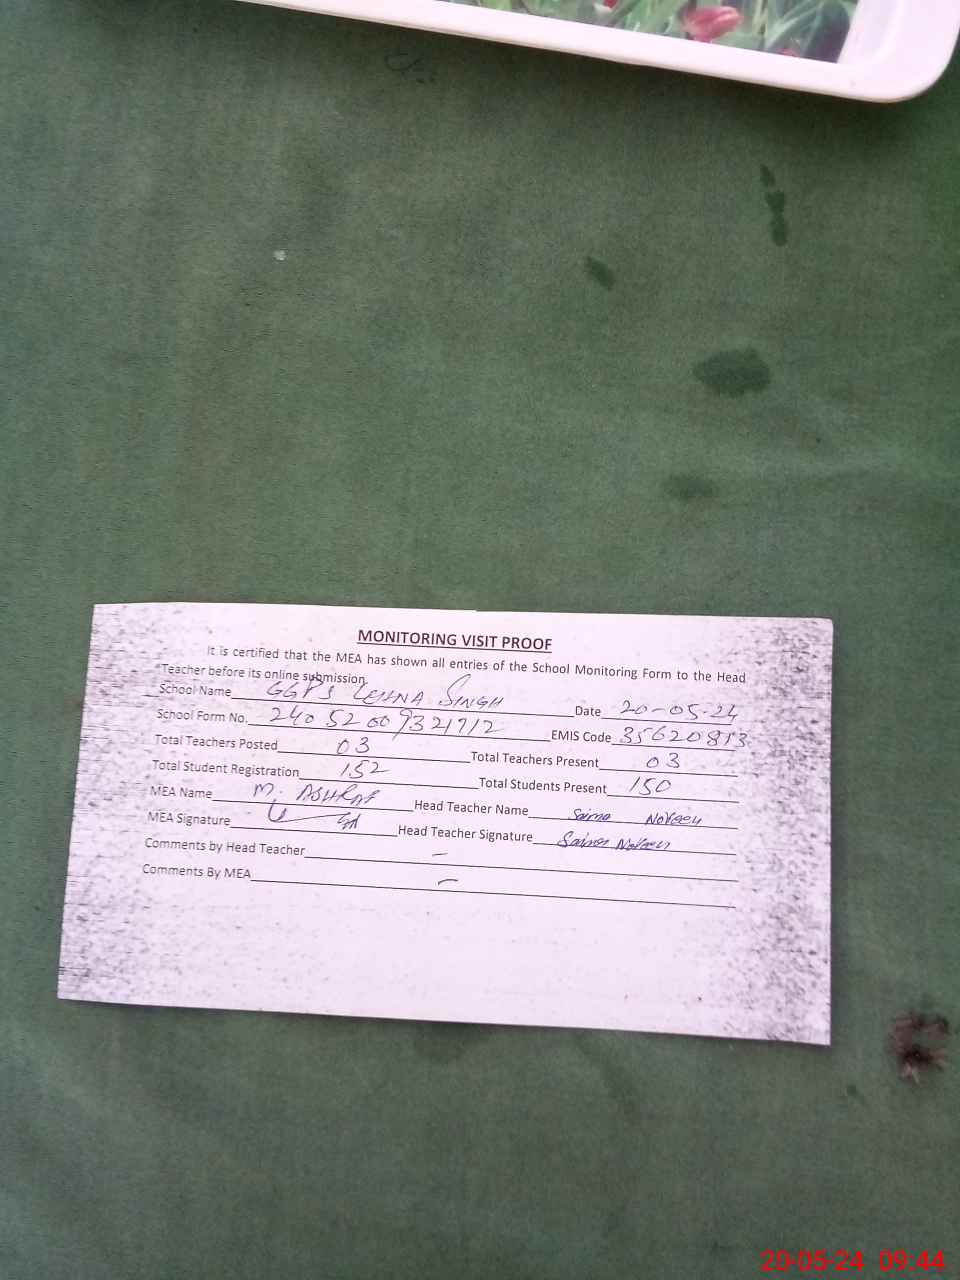 MONITORING VISIT PROOF
It is certified that the MEA has shown all entries of the School Monitoring Form to the Head
Teacher before its online submission.
School Name GGPS LEHNA SINGH Date 20-05-24
School Form No. 24052009321712 EMIS Code 35620813
Total Teachers Posted 03 Total Teachers Present 03
Total Student Registration 152 Total Students Present 150
MEA Name M. ASHRAF Head Teacher Name Saima Noreen
MEA Signature Head Teacher Signature Saima Noreen
Comments by Head Teacher —
Comments By MEA —
20-05-24 09:44